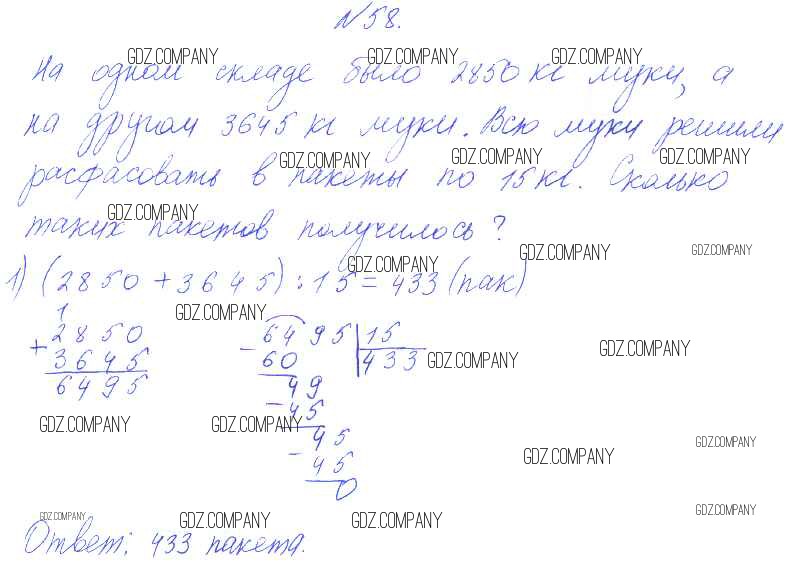 №58.
GDZ.COMPANY GDZ.COMPANY GDZ.COMPANY
На одном складе было 2850 кг муки, а
на другом 3645 кг муки. Всю муку решили
GDZ.COMPANY GDZ.COMPANY GDZ.COMPANY
расфасовать в пакеты по 15 кг. Сколько
GDZ.COMPANY
таких пакетов получилось?
GDZ.COMPANY GDZ.COMPANY GDZ.COMPANY
1) (2850 + 3645) : 15 = 433 (пак)
GDZ.COMPANY
1
+ 2850
3645
6495
- 6495 | 15
60 433
49
- 45
45
- 45
0
GDZ.COMPANY GDZ.COMPANY
GDZ.COMPANY GDZ.COMPANY GDZ.COMPANY
GDZ.COMPANY GDZ.COMPANY
GDZ.COMPANY GDZ.COMPANY GDZ.COMPANY
Ответ: 433 пакета.